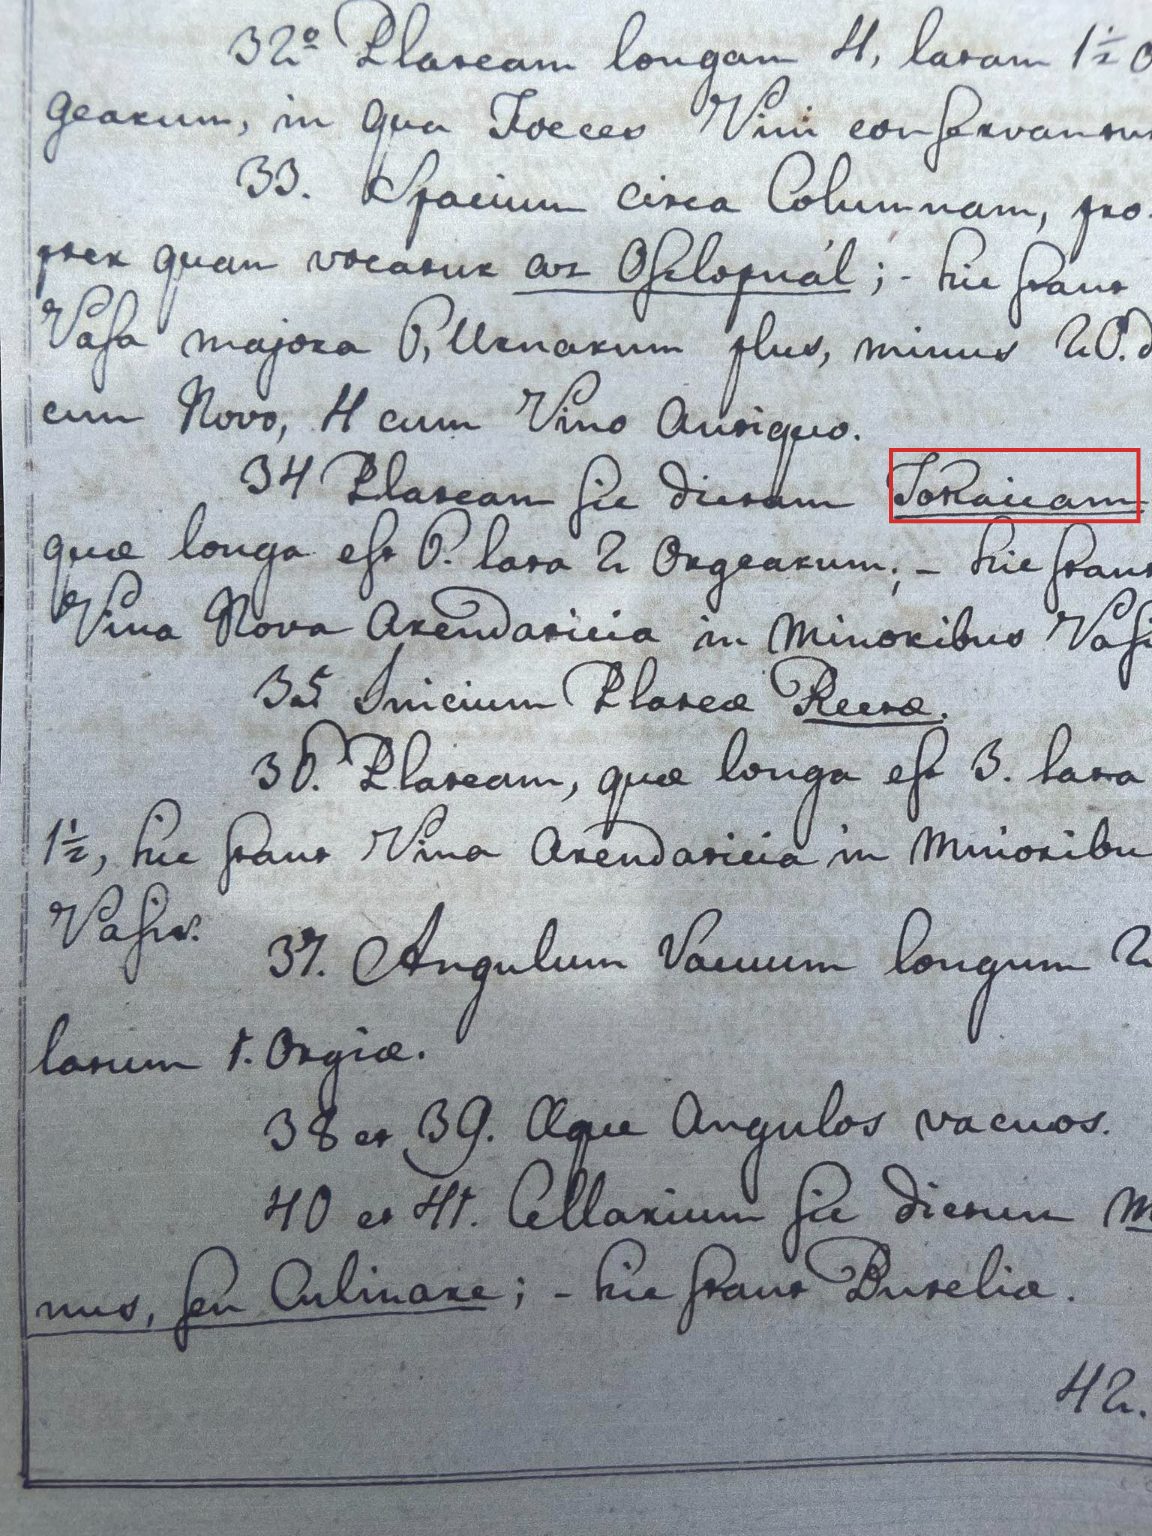 32º Plateam longam 4, latam 1½ O
gearum, in qua Foeces Vini conservantur
33. Spacium circa Columnam, pro-
pter quam vocatur az Oszlopnál; - hic stant
Vasa majora 6, Urnarum plus, minus 20.
cum Novo, 4 cum Vino Antiquo.
34 Plateam sic dictam Tokaicam
quæ longa est 6. lata 2 Orgearum; - hic stant
Vina Nova Arendaticia in minoribus Vasi
35 Inicium Plateæ Rectæ.
36. Plateam, quæ longa est 3. lata
1½, hic stant Vina Arendaticia in Minoribu
Vasis.
37. Angulum Vacuum longum 2
latum 1. Orgiæ.
38 et 39. Æque Angulos vacuos.
40 et 41. Cellarium sic dictum M
nus, seu Culinare; - hic stant Butelia.
42.